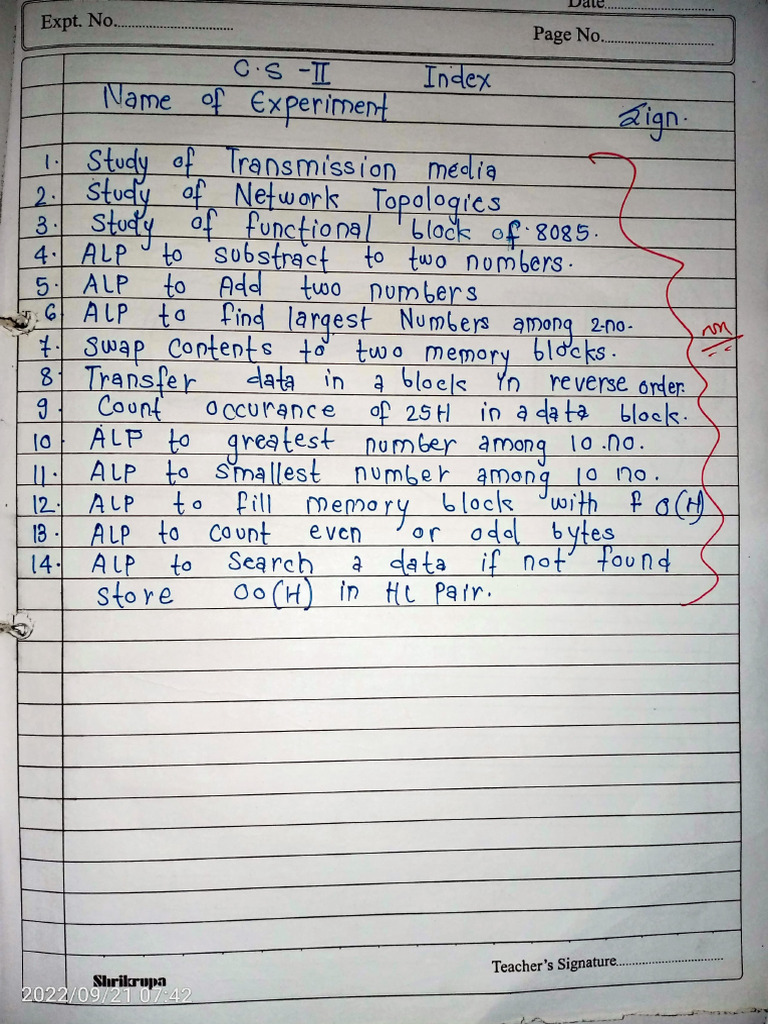 Date
Expt. No.
Page No.
C.S -II Index
Name of Experiment Sign.
1. Study of Transmission media
2. Study of Network Topologies
3. Study of functional block of 8085.
4. ALP to substract to two numbers.
5. ALP to Add two numbers
6 ALP to find largest Numbers among 2-no.
7. Swap Contents to two memory blocks.
8 Transfer data in a block in reverse order.
9. Count occurance of 25H in a data block.
10 ALP to greatest number among 10 .no.
11. ALP to smallest number among 10 no.
12. ALP to fill memory block with f 0(H)
13. ALP to count even or odd bytes
14. ALP to Search a data if not found
store 00(H) in HL Pair.
Teacher's Signature
Shrikrupa
2022/09/21 07:42